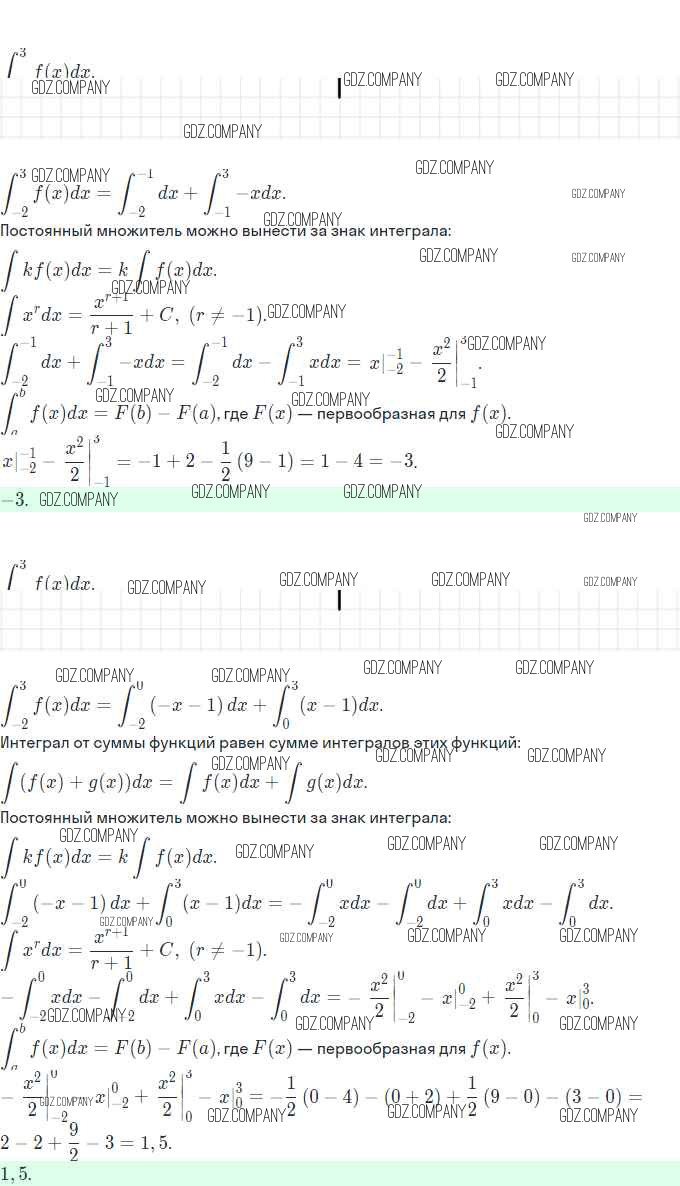 ∫^3 f(x)dx.
GDZ.COMPANY GDZ.COMPANY GDZ.COMPANY
GDZ.COMPANY
GDZ.COMPANY GDZ.COMPANY
∫_{-2}^{3} f(x)dx = ∫_{-2}^{-1} dx + ∫_{-1}^{3} −xdx.
GDZ.COMPANY
GDZ.COMPANY
Постоянный множитель можно вынести за знак интеграла:
GDZ.COMPANY GDZ.COMPANY
∫ kf(x)dx = k ∫ f(x)dx.
GDZ.COMPANY
∫ x^r dx = x^{r+1}/(r+1) + C, (r ≠ −1). GDZ.COMPANY
GDZ.COMPANY
∫_{-2}^{-1} dx + ∫_{-1}^{3} −xdx = ∫_{-2}^{-1} dx − ∫_{-1}^{3} xdx = x|_{-2}^{-1} − x²/2|_{-1}^{3}.
GDZ.COMPANY GDZ.COMPANY
∫_a^b f(x)dx = F(b) − F(a), где F(x) — первообразная для f(x).
GDZ.COMPANY
x|_{-2}^{-1} − x²/2|_{-1}^{3} = −1 + 2 − 1/2 (9 − 1) = 1 − 4 = −3.
GDZ.COMPANY GDZ.COMPANY
−3. GDZ.COMPANY
GDZ.COMPANY
∫^3 f(x)dx.
GDZ.COMPANY GDZ.COMPANY GDZ.COMPANY GDZ.COMPANY
GDZ.COMPANY GDZ.COMPANY GDZ.COMPANY GDZ.COMPANY
∫_{-2}^{3} f(x)dx = ∫_{-2}^{0} (−x − 1) dx + ∫_{0}^{3} (x − 1)dx.
Интеграл от суммы функций равен сумме интегралов этих функций:
GDZ.COMPANY GDZ.COMPANY GDZ.COMPANY
∫ (f(x) + g(x))dx = ∫ f(x)dx + ∫ g(x)dx.
Постоянный множитель можно вынести за знак интеграла:
GDZ.COMPANY GDZ.COMPANY GDZ.COMPANY GDZ.COMPANY
∫ kf(x)dx = k ∫ f(x)dx.
∫_{-2}^{0} (−x − 1) dx + ∫_{0}^{3} (x − 1)dx = − ∫_{-2}^{0} xdx − ∫_{-2}^{0} dx + ∫_{0}^{3} xdx − ∫_{0}^{3} dx.
GDZ.COMPANY GDZ.COMPANY GDZ.COMPANY GDZ.COMPANY
∫ x^r dx = x^{r+1}/(r+1) + C, (r ≠ −1).
− ∫_{-2}^{0} xdx − ∫_{-2}^{0} dx + ∫_{0}^{3} xdx − ∫_{0}^{3} dx = − x²/2|_{-2}^{0} − x|_{-2}^{0} + x²/2|_{0}^{3} − x|_{0}^{3}.
GDZ.COMPANY GDZ.COMPANY GDZ.COMPANY
∫_a^b f(x)dx = F(b) − F(a), где F(x) — первообразная для f(x).
− x²/2|_{-2}^{0} − x|_{-2}^{0} + x²/2|_{0}^{3} − x|_{0}^{3} = −1/2 (0 − 4) − (0 + 2) + 1/2 (9 − 0) − (3 − 0) =
GDZ.COMPANY GDZ.COMPANY GDZ.COMPANY GDZ.COMPANY
2 − 2 + 9/2 − 3 = 1, 5.
1, 5.